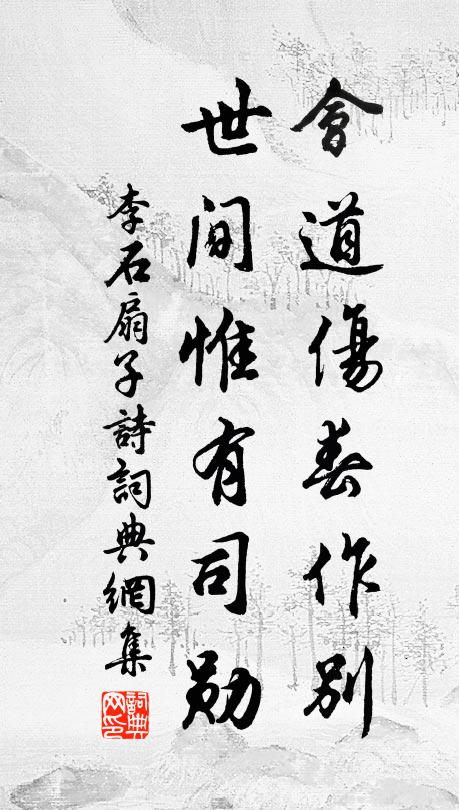 會道傷春作別
世間惟有司勋
李石扇子詩詞典網集
詞典網印